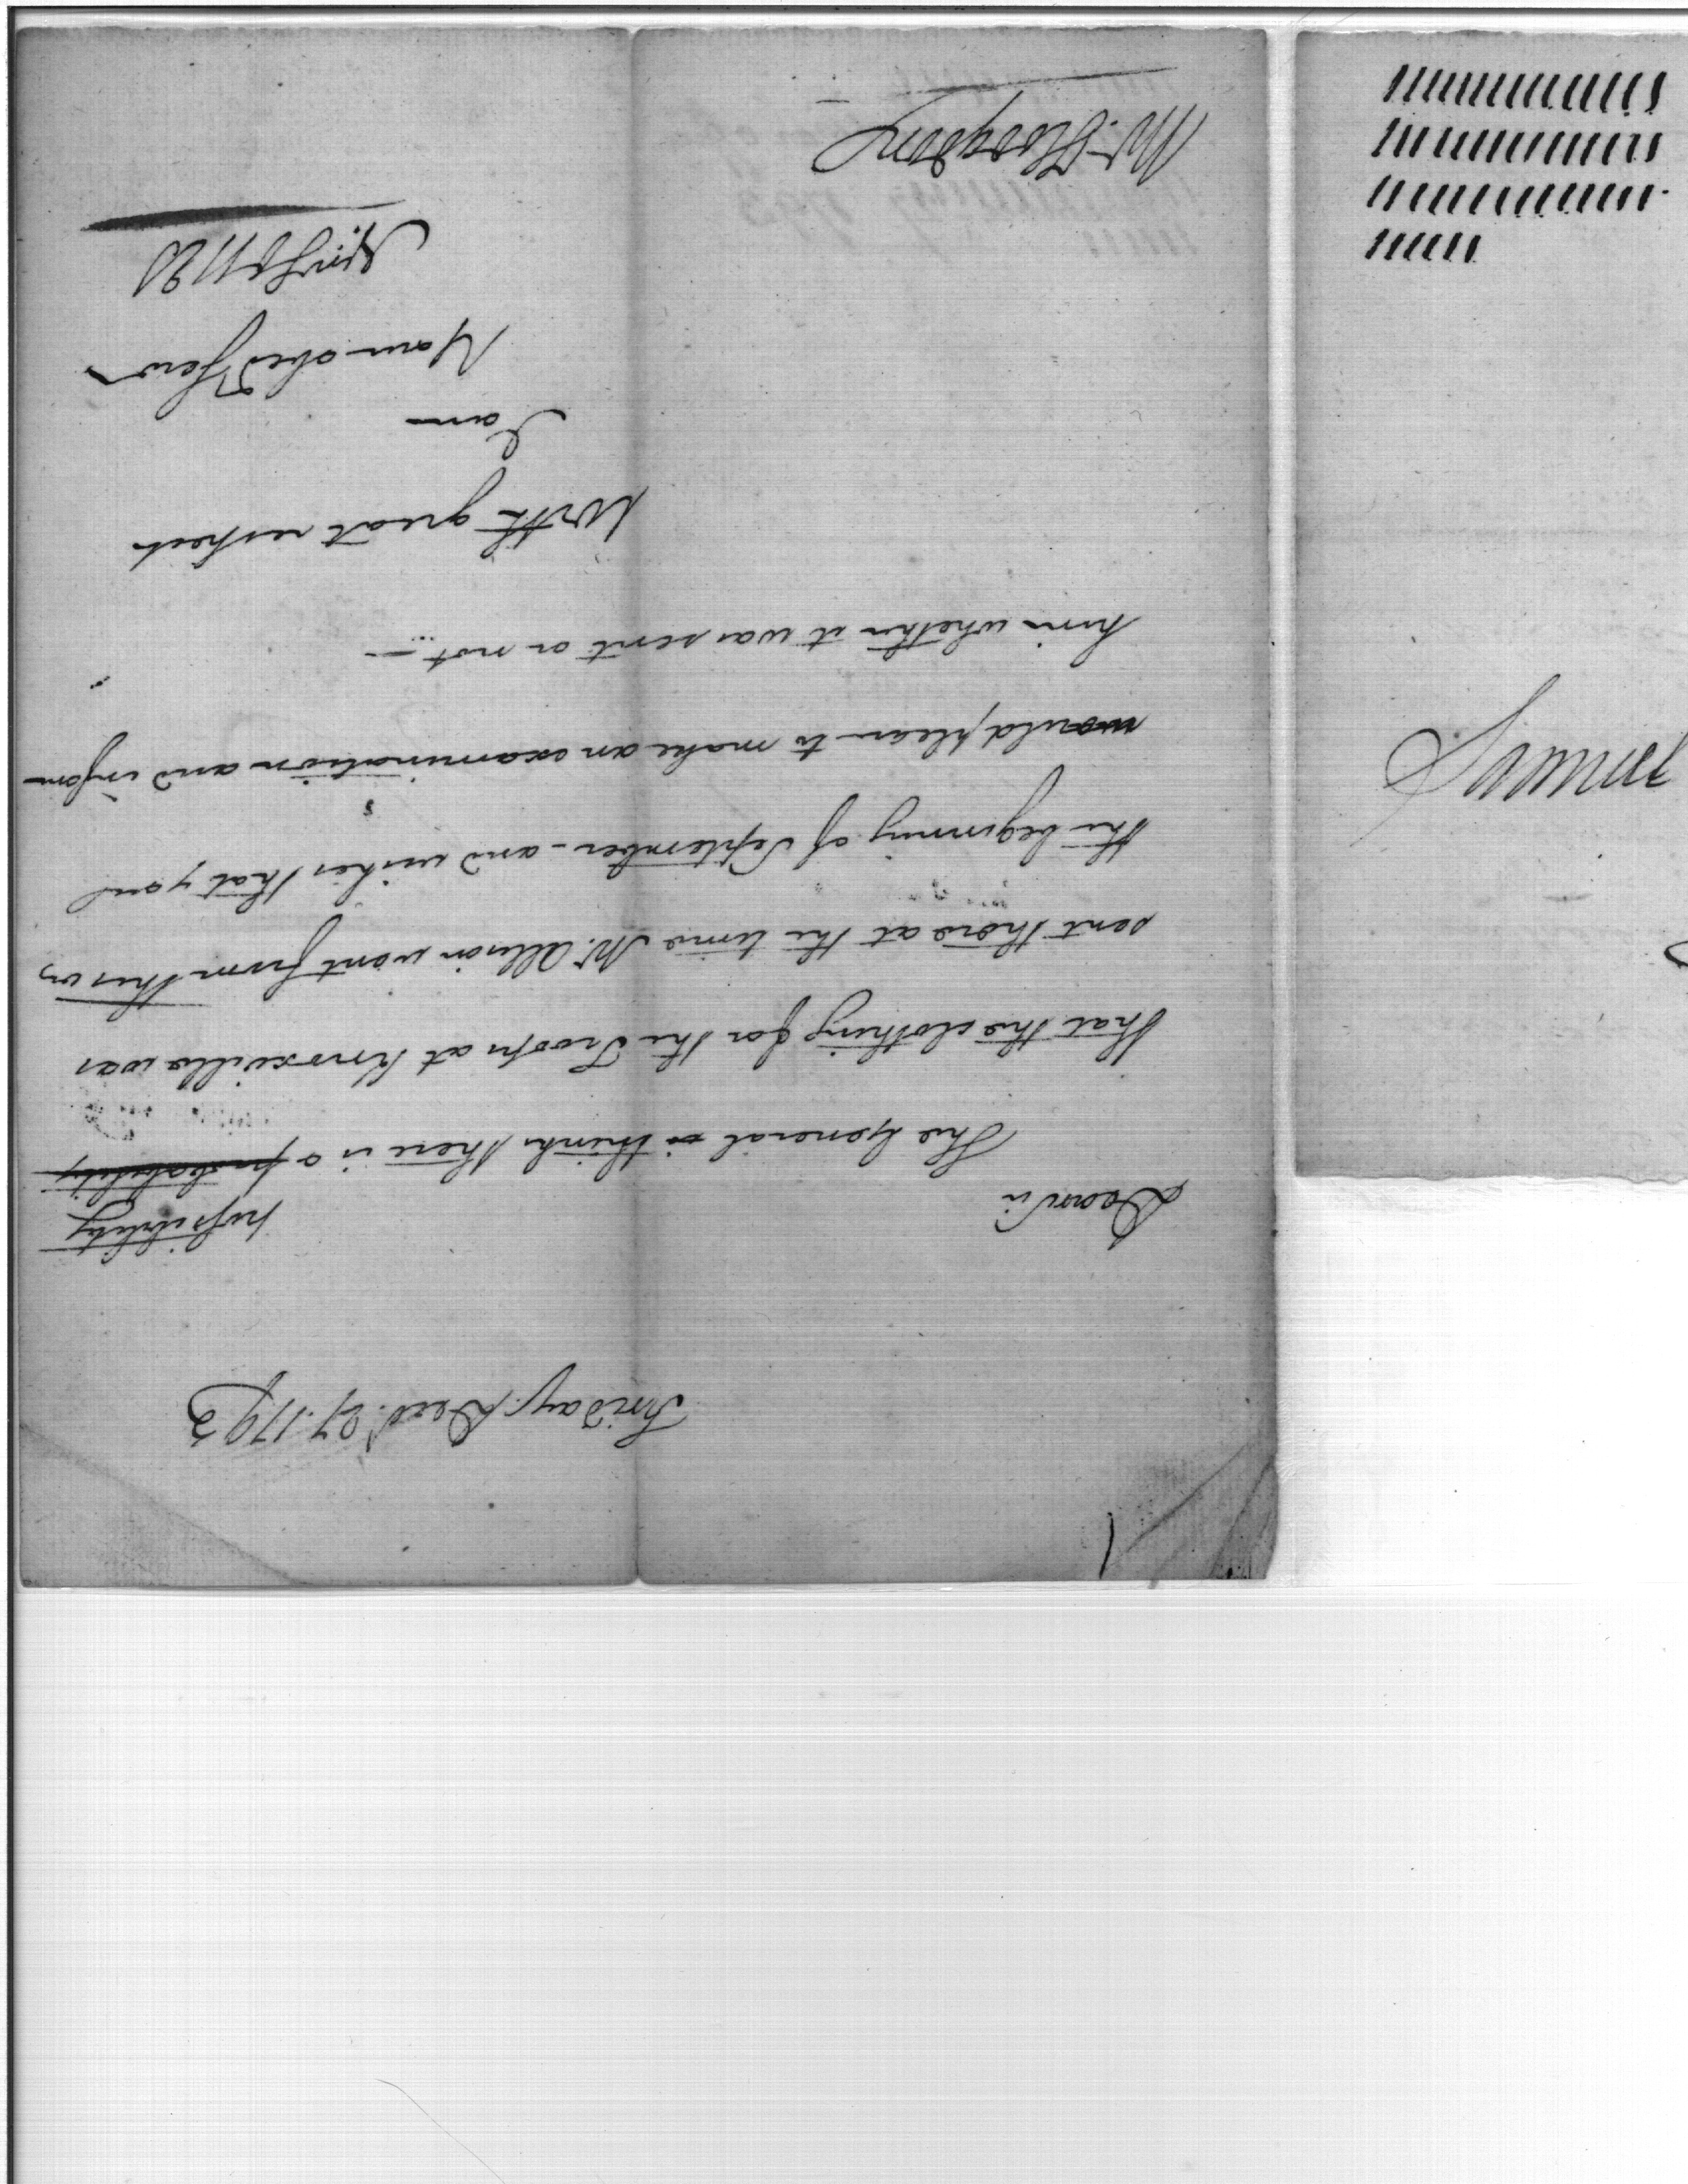 Friday. Decr. 27. 1793
Dear Sir
possibility
The General thinks there is a probability
that the clothing for the Troops at Knoxville was
sent there at the time Mr. Allison went from this in
the beginning of September - and wishes that you
would please to make an examination and inform
him whether it was sent or not -
With great respect
I am
Your obed Serv
Mr. Hodgdon
Samuel